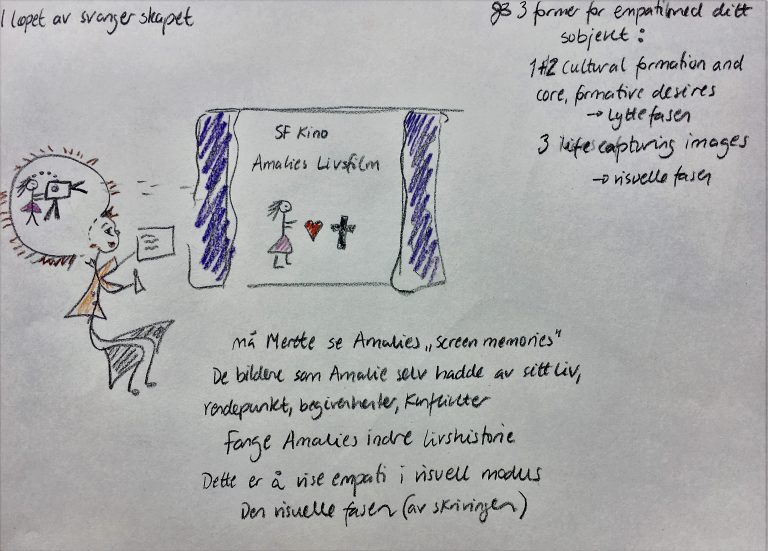 I løpet av svangerskapet
3 former for empati med ditt
subjekt:
1+2 Cultural formation and
core, formative desires
→ Lyttefasen
3 life capturing images
→ visuelle fasen
SF Kino
Amalies Livsfilm
må Merete se Amalies „screen memories"
De bildene som Amalie selv hadde av sitt liv,
vendepunkt, begivenheter, konflikter
Fange Amalies indre livshistorie
Dette er å vise empati i visuell modus
Den visuelle fasen (av skrivingen)